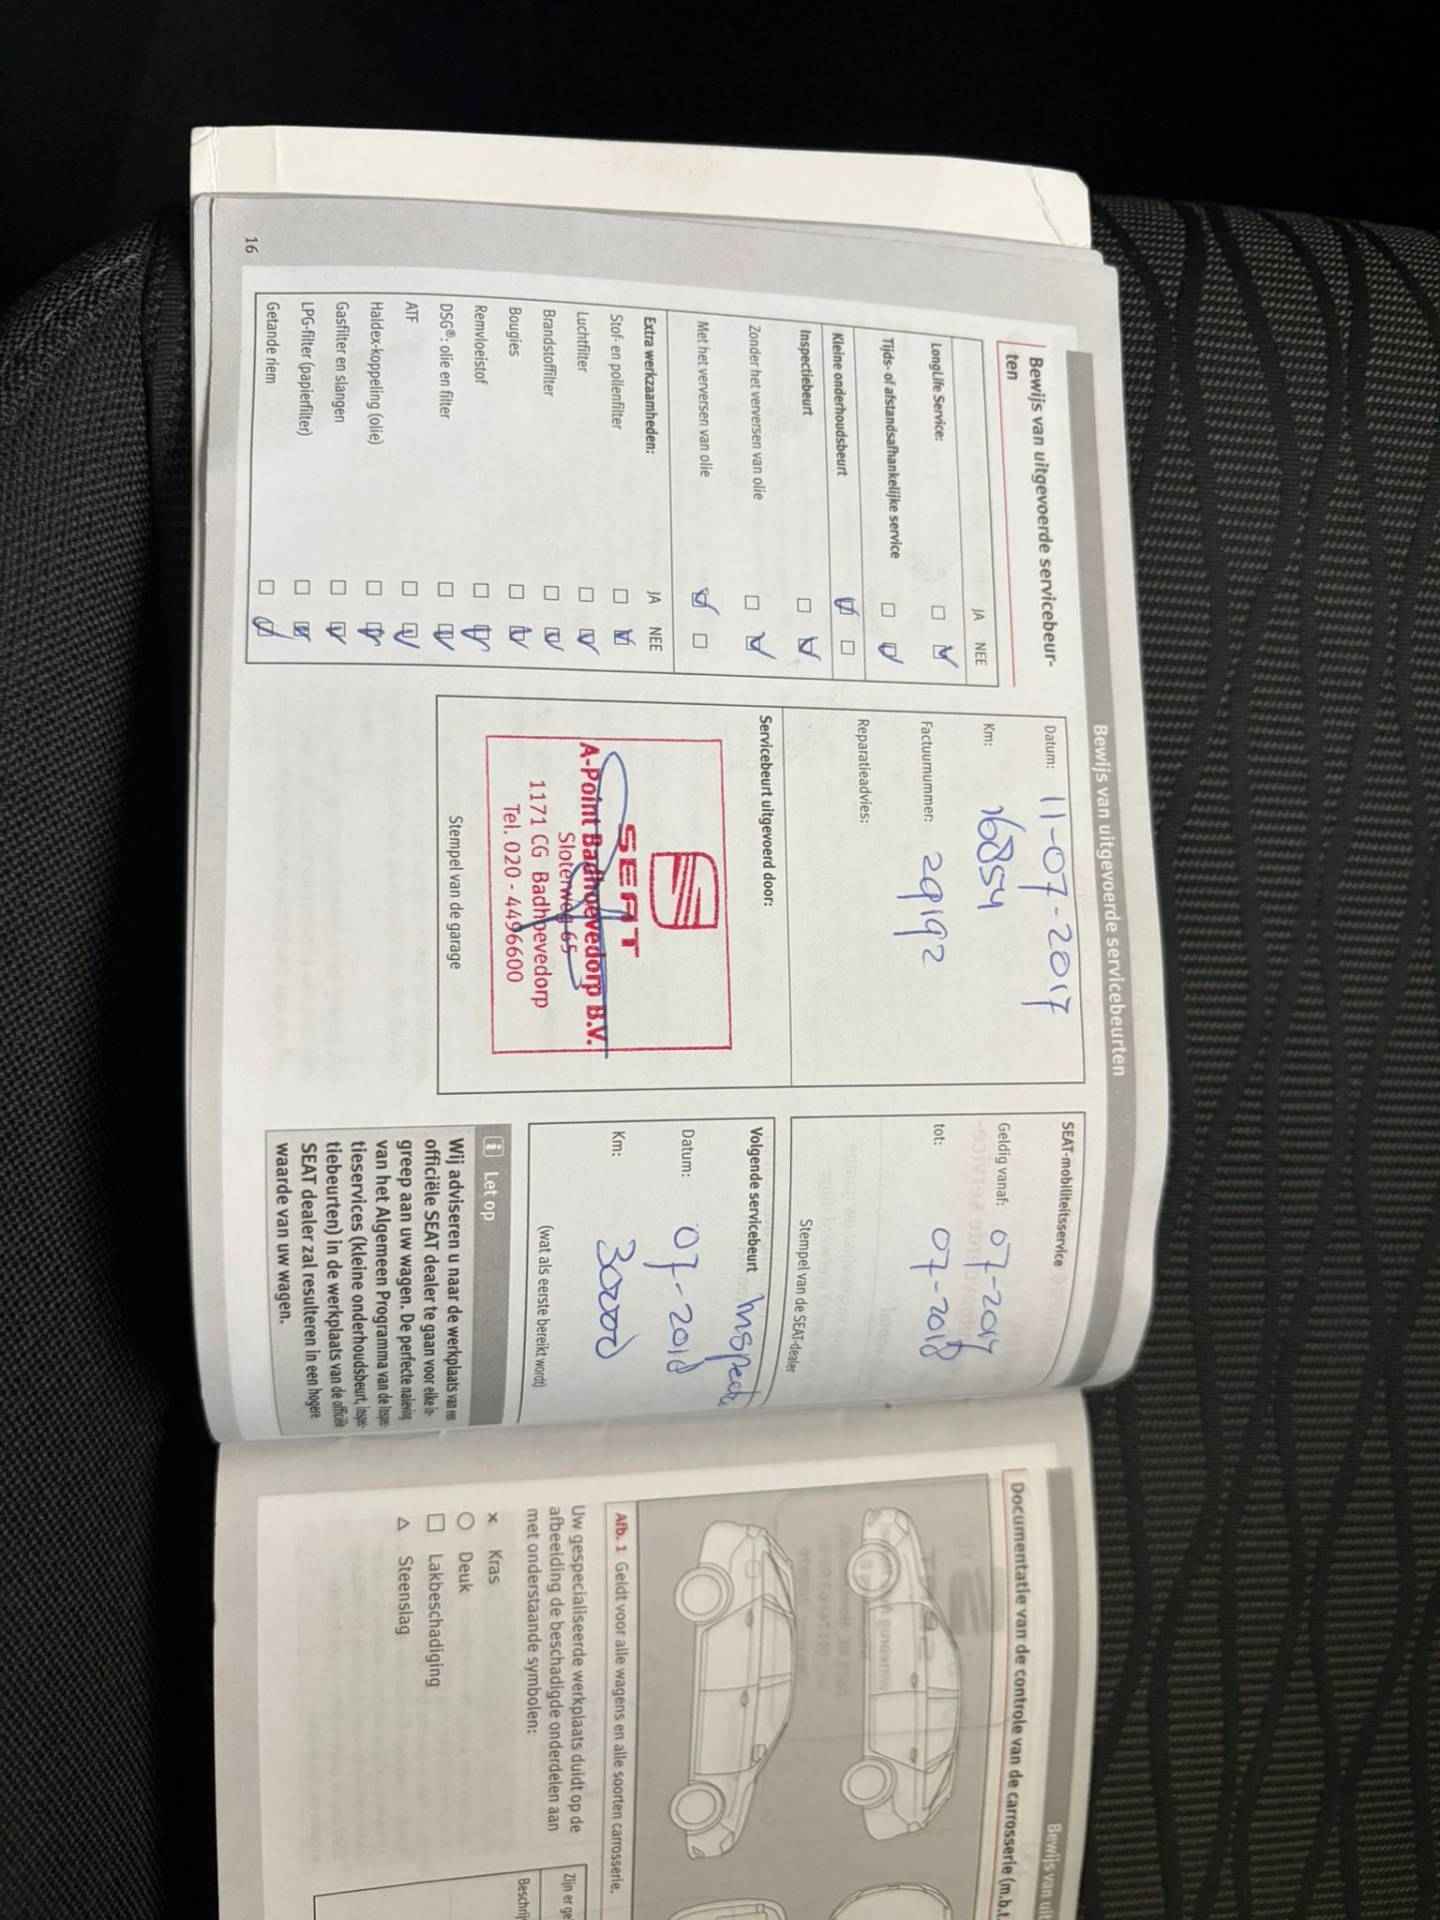 Bewijs van uitgevoerde servicebeurten
Bewijs van uitgevoerde servicebeur-
ten
JA NEE
LongLife Service:
Tijds- of afstandsafhankelijke service
Kleine onderhoudsbeurt
Inspectiebeurt
Zonder het verversen van olie
Met het verversen van olie
Extra werkzaamheden: JA NEE
Stof- en pollenfilter
Luchtfilter
Brandstoffilter
Bougies
Remvloeistof
DSG®: olie en filter
ATF
Haldex-koppeling (olie)
Gasfilter en slangen
LPG-filter (papierfilter)
Getande riem
16
Datum: 11-07-2017
Km: 16854
Factuurnummer: 29192
Reparatieadvies:
Servicebeurt uitgevoerd door:
SEAT
A-Point Badhoevedorp B.V.
Sloterweg 65
1171 CG Badhoevedorp
Tel. 020 - 4496600
Stempel van de garage
SEAT-mobiliteitsservice
Geldig vanaf: 07-2017
tot: 07-2018
Stempel van de SEAT-dealer
Volgende servicebeurt Inspectie
Datum: 07-2018
Km: 30000
(wat als eerste bereikt wordt)
i Let op
Wij adviseren u naar de werkplaats van een
officiële SEAT dealer te gaan voor elke in-
greep aan uw wagen. De perfecte naleving
van het Algemeen Programma van de Inspec-
tieservices (kleine onderhoudsbeurt, inspec-
tiebeurten) in de werkplaats van de officiële
SEAT dealer zal resulteren in een hogere
waarde van uw wagen.
Bewijs van uit
Documentatie van de controle van de carrosserie (m.b.t.
Afb. 1 Geldt voor alle wagens en alle soorten carrosserie.
Uw gespecialiseerde werkplaats duidt op de
afbeelding de beschadigde onderdelen aan
met onderstaande symbolen:
× Kras
○ Deuk
□ Lakbeschadiging
△ Steenslag
Zijn er ge
Beschrij